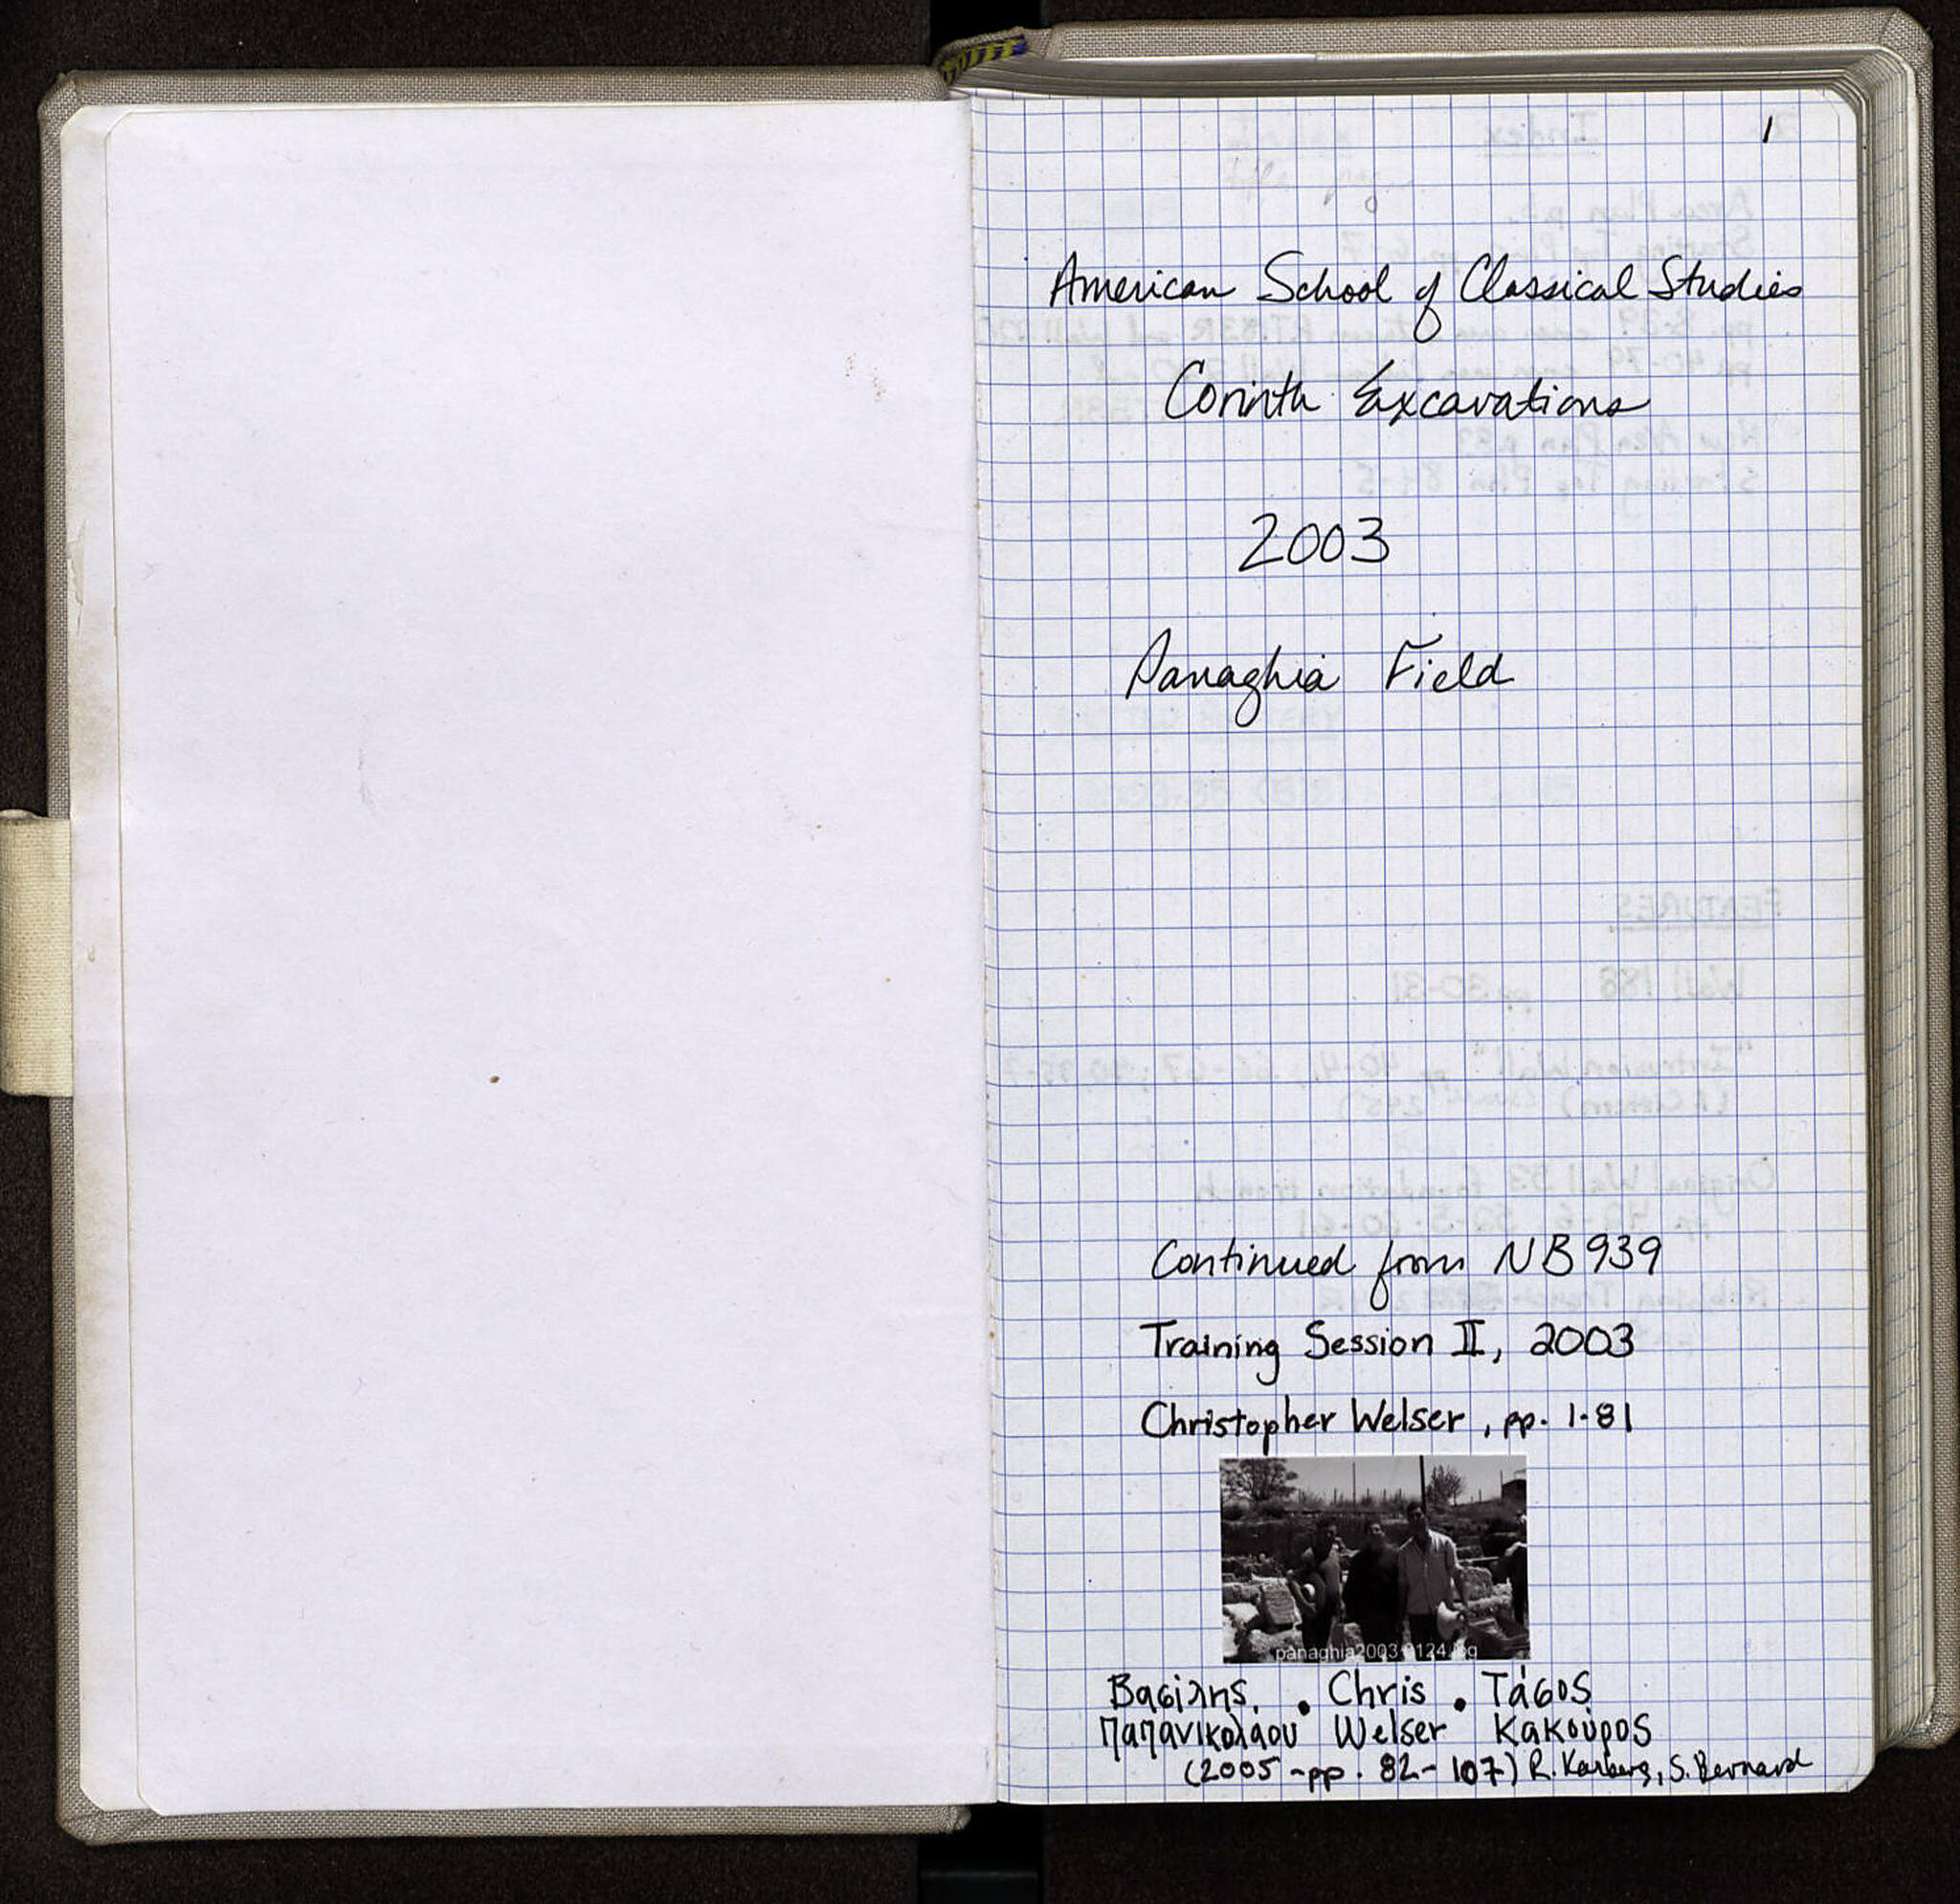 1
American School of Classical Studies
Corinth Excavations
2003
Panaghia Field
Continued from NB 939
Training Session II, 2003
Christopher Welser, pp. 1-81
panaghia2003 0124.jpg
Βασίλης • Chris • Τάσος
Παπανικολάου Welser Κακούρος
(2005 - pp. 82-107) R. Karberg, S. Bernard